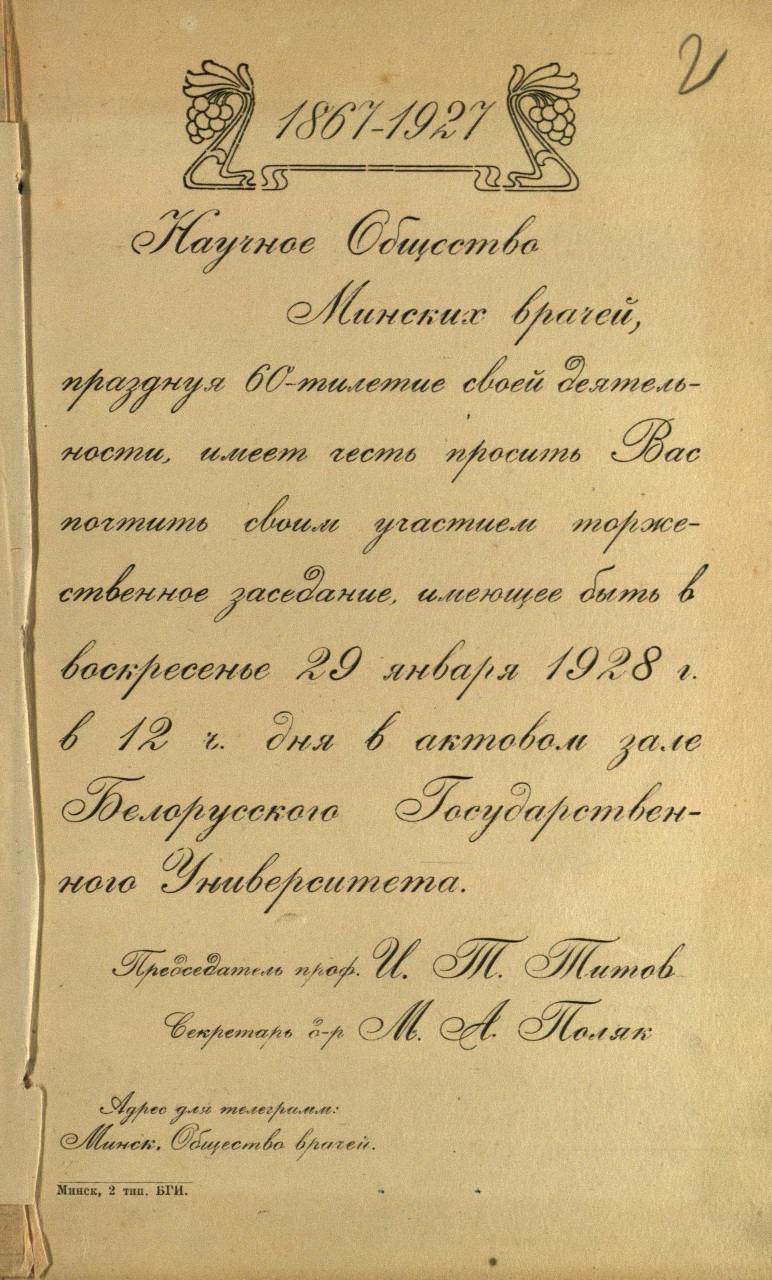 2
1867-1927
Научное Общество
Минских врачей,
празднуя 60-тилетие своей деятель-
ности, имеет честь просить Вас
почтить своим участием торже-
ственное заседание, имеющее быть в
воскресенье 29 января 1928 г.
в 12 ч. дня в актовом зале
Белорусского Государствен-
ного Университета.
Председатель проф. И. Т. Титов
Секретарь д-р М. А. Поляк
Адрес для телеграмм:
Минск. Общество врачей.
Минск, 2 тип. БГИ.